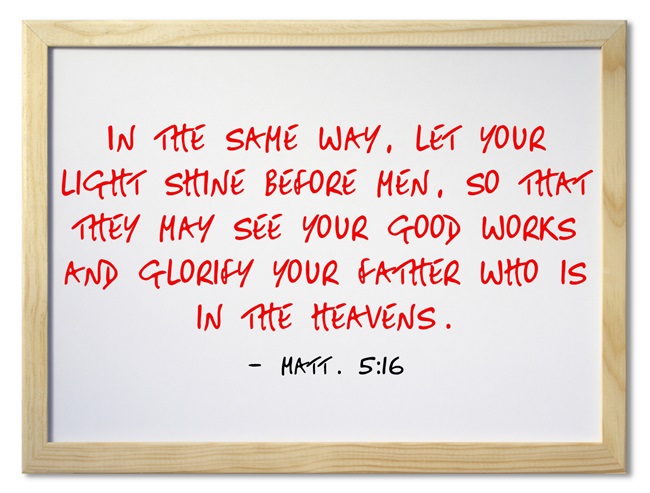 IN THE SAME WAY, LET YOUR
LIGHT SHINE BEFORE MEN, SO THAT
THEY MAY SEE YOUR GOOD WORKS
AND GLORIFY YOUR FATHER WHO IS
IN THE HEAVENS.
- MATT. 5:16